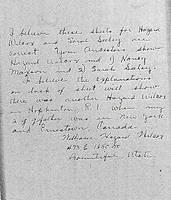 I believe these sheets for Hazard
Wilcox and Sarah Seeley are
correct. Your Ancestors show
Hazard Wilcox and 1) Nancy
and 2) Sarah Seeley.
I believe the explanations
on back of sheet will show
there was another Hazard Wilcox
in Hopkinton, R.I. when my
g father was in New York
and Ernestown, Canada.
William Hazard Wilcox
Bountiful Utah